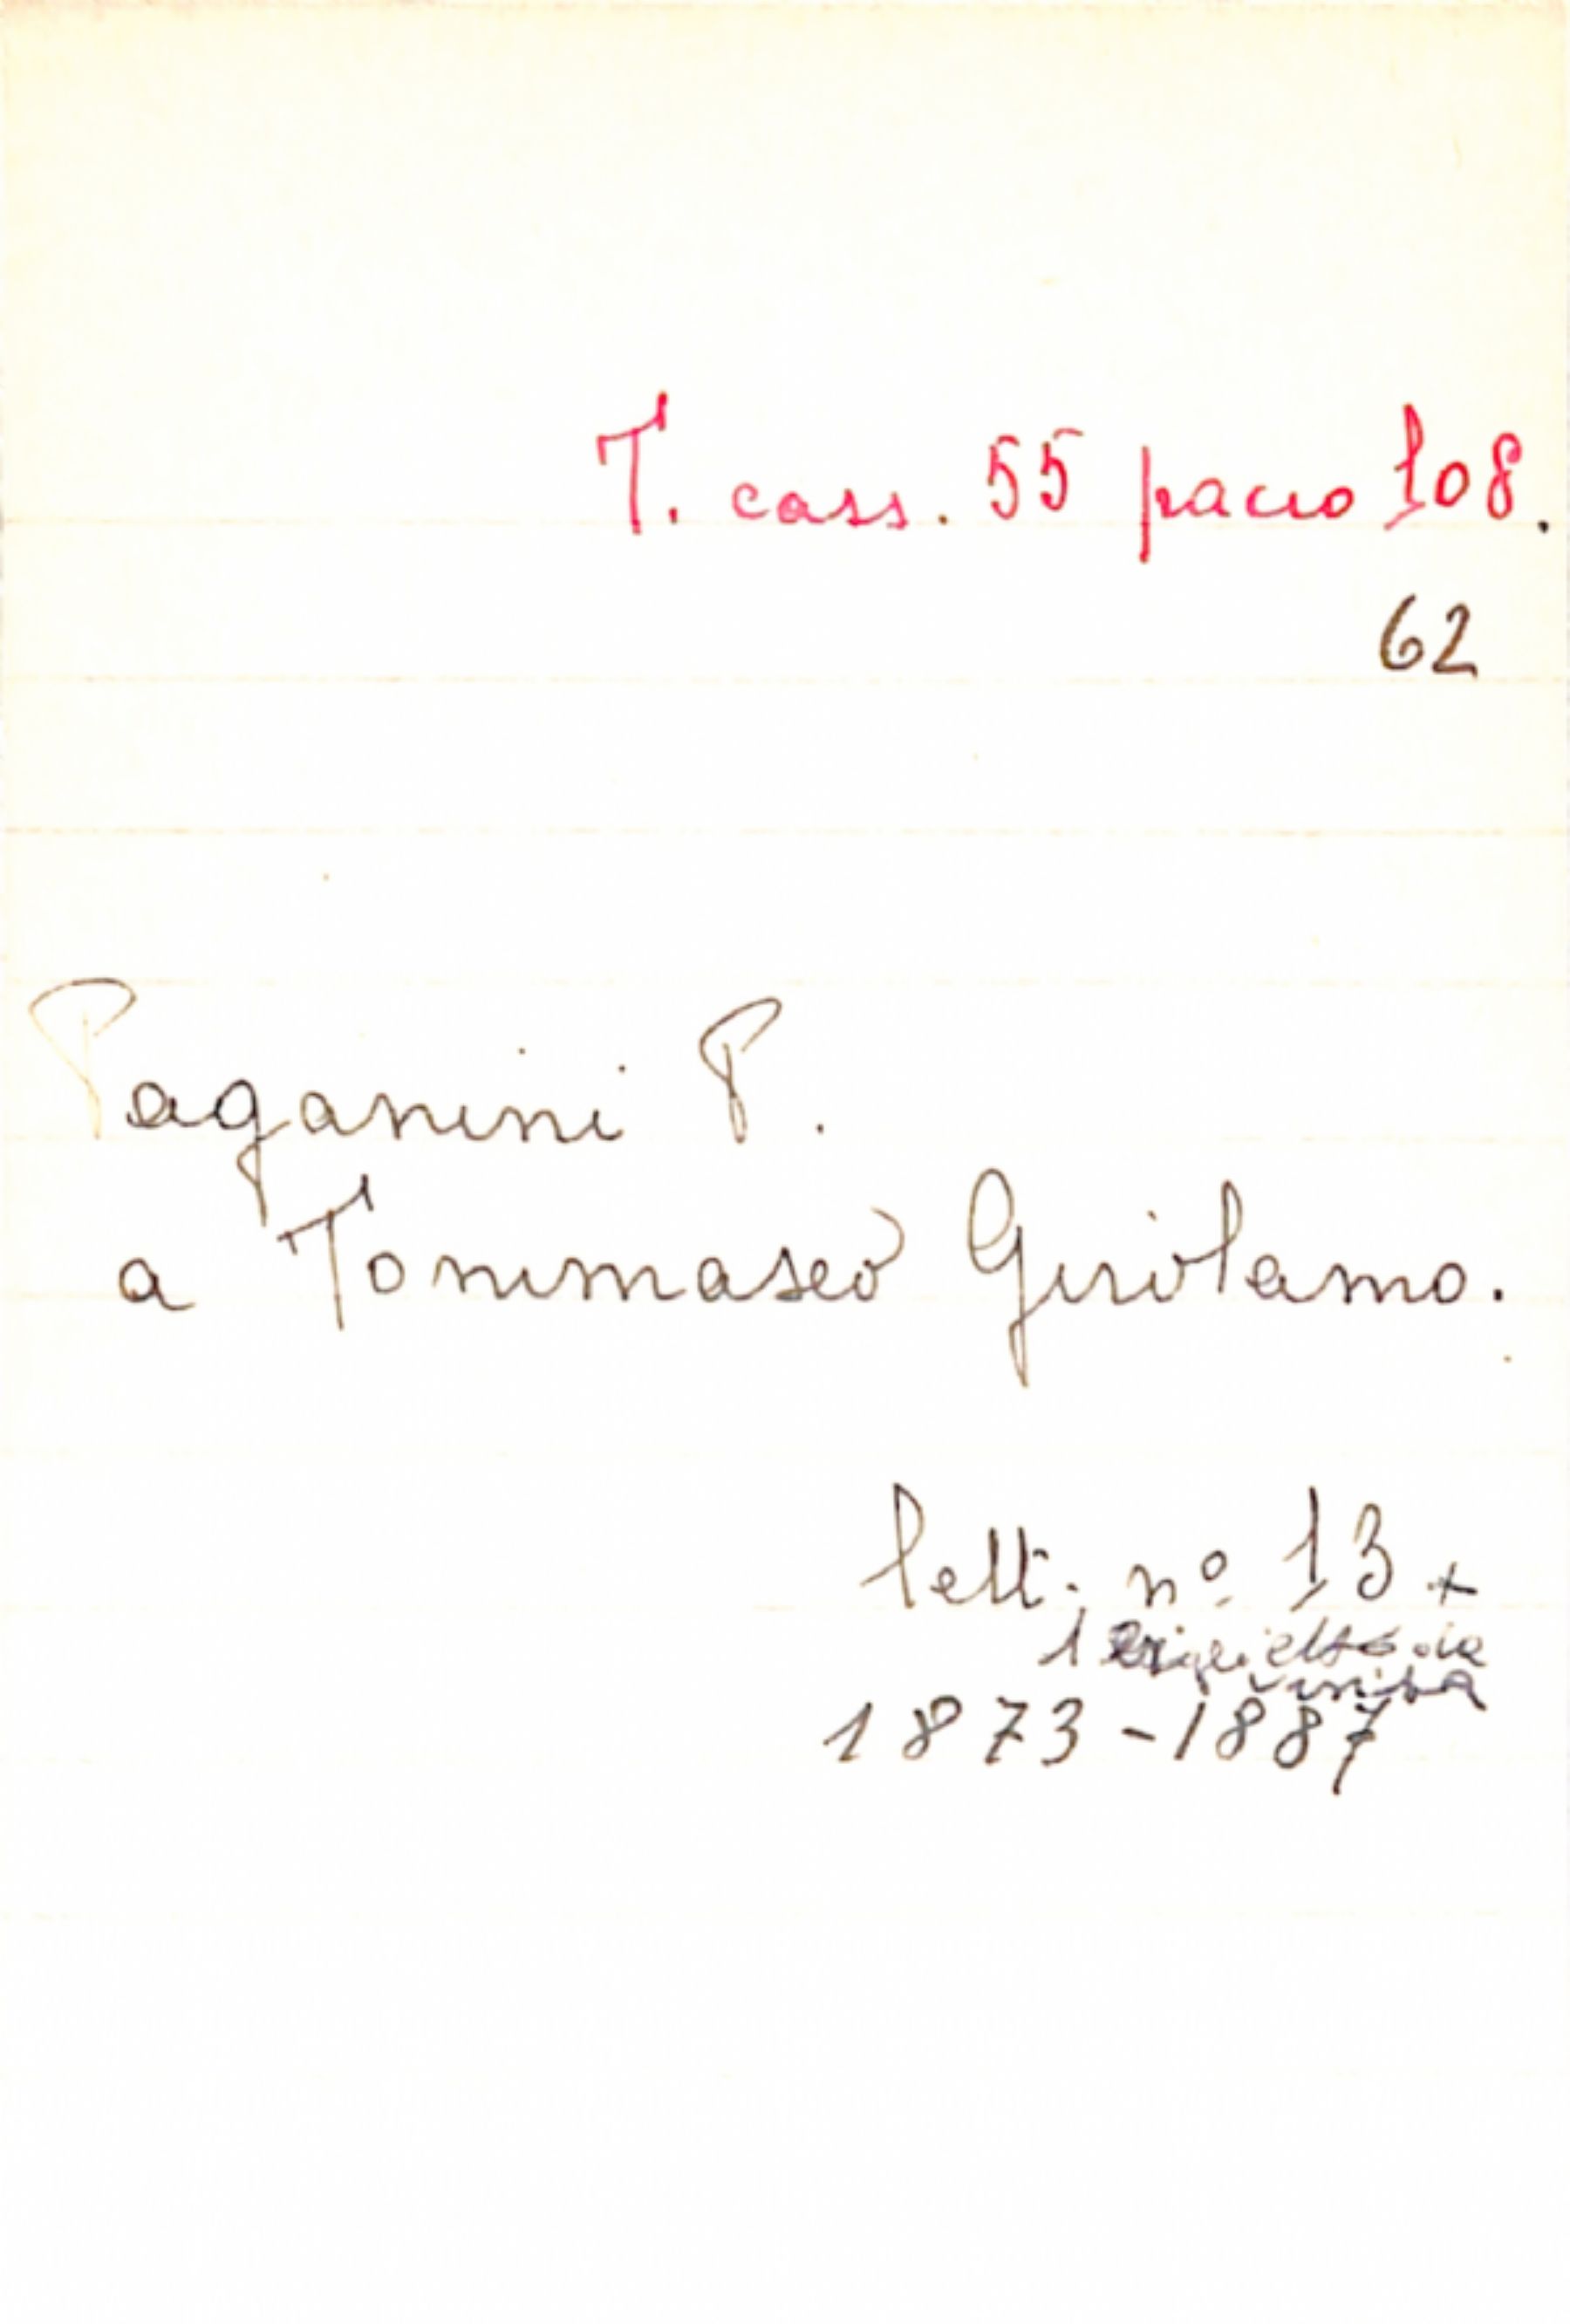 T. cass. 55 pacco 108.
62
Paganini P.
a Tommaseo Girolamo.
lett. nº 13 +
1 da
visita
1873-1887